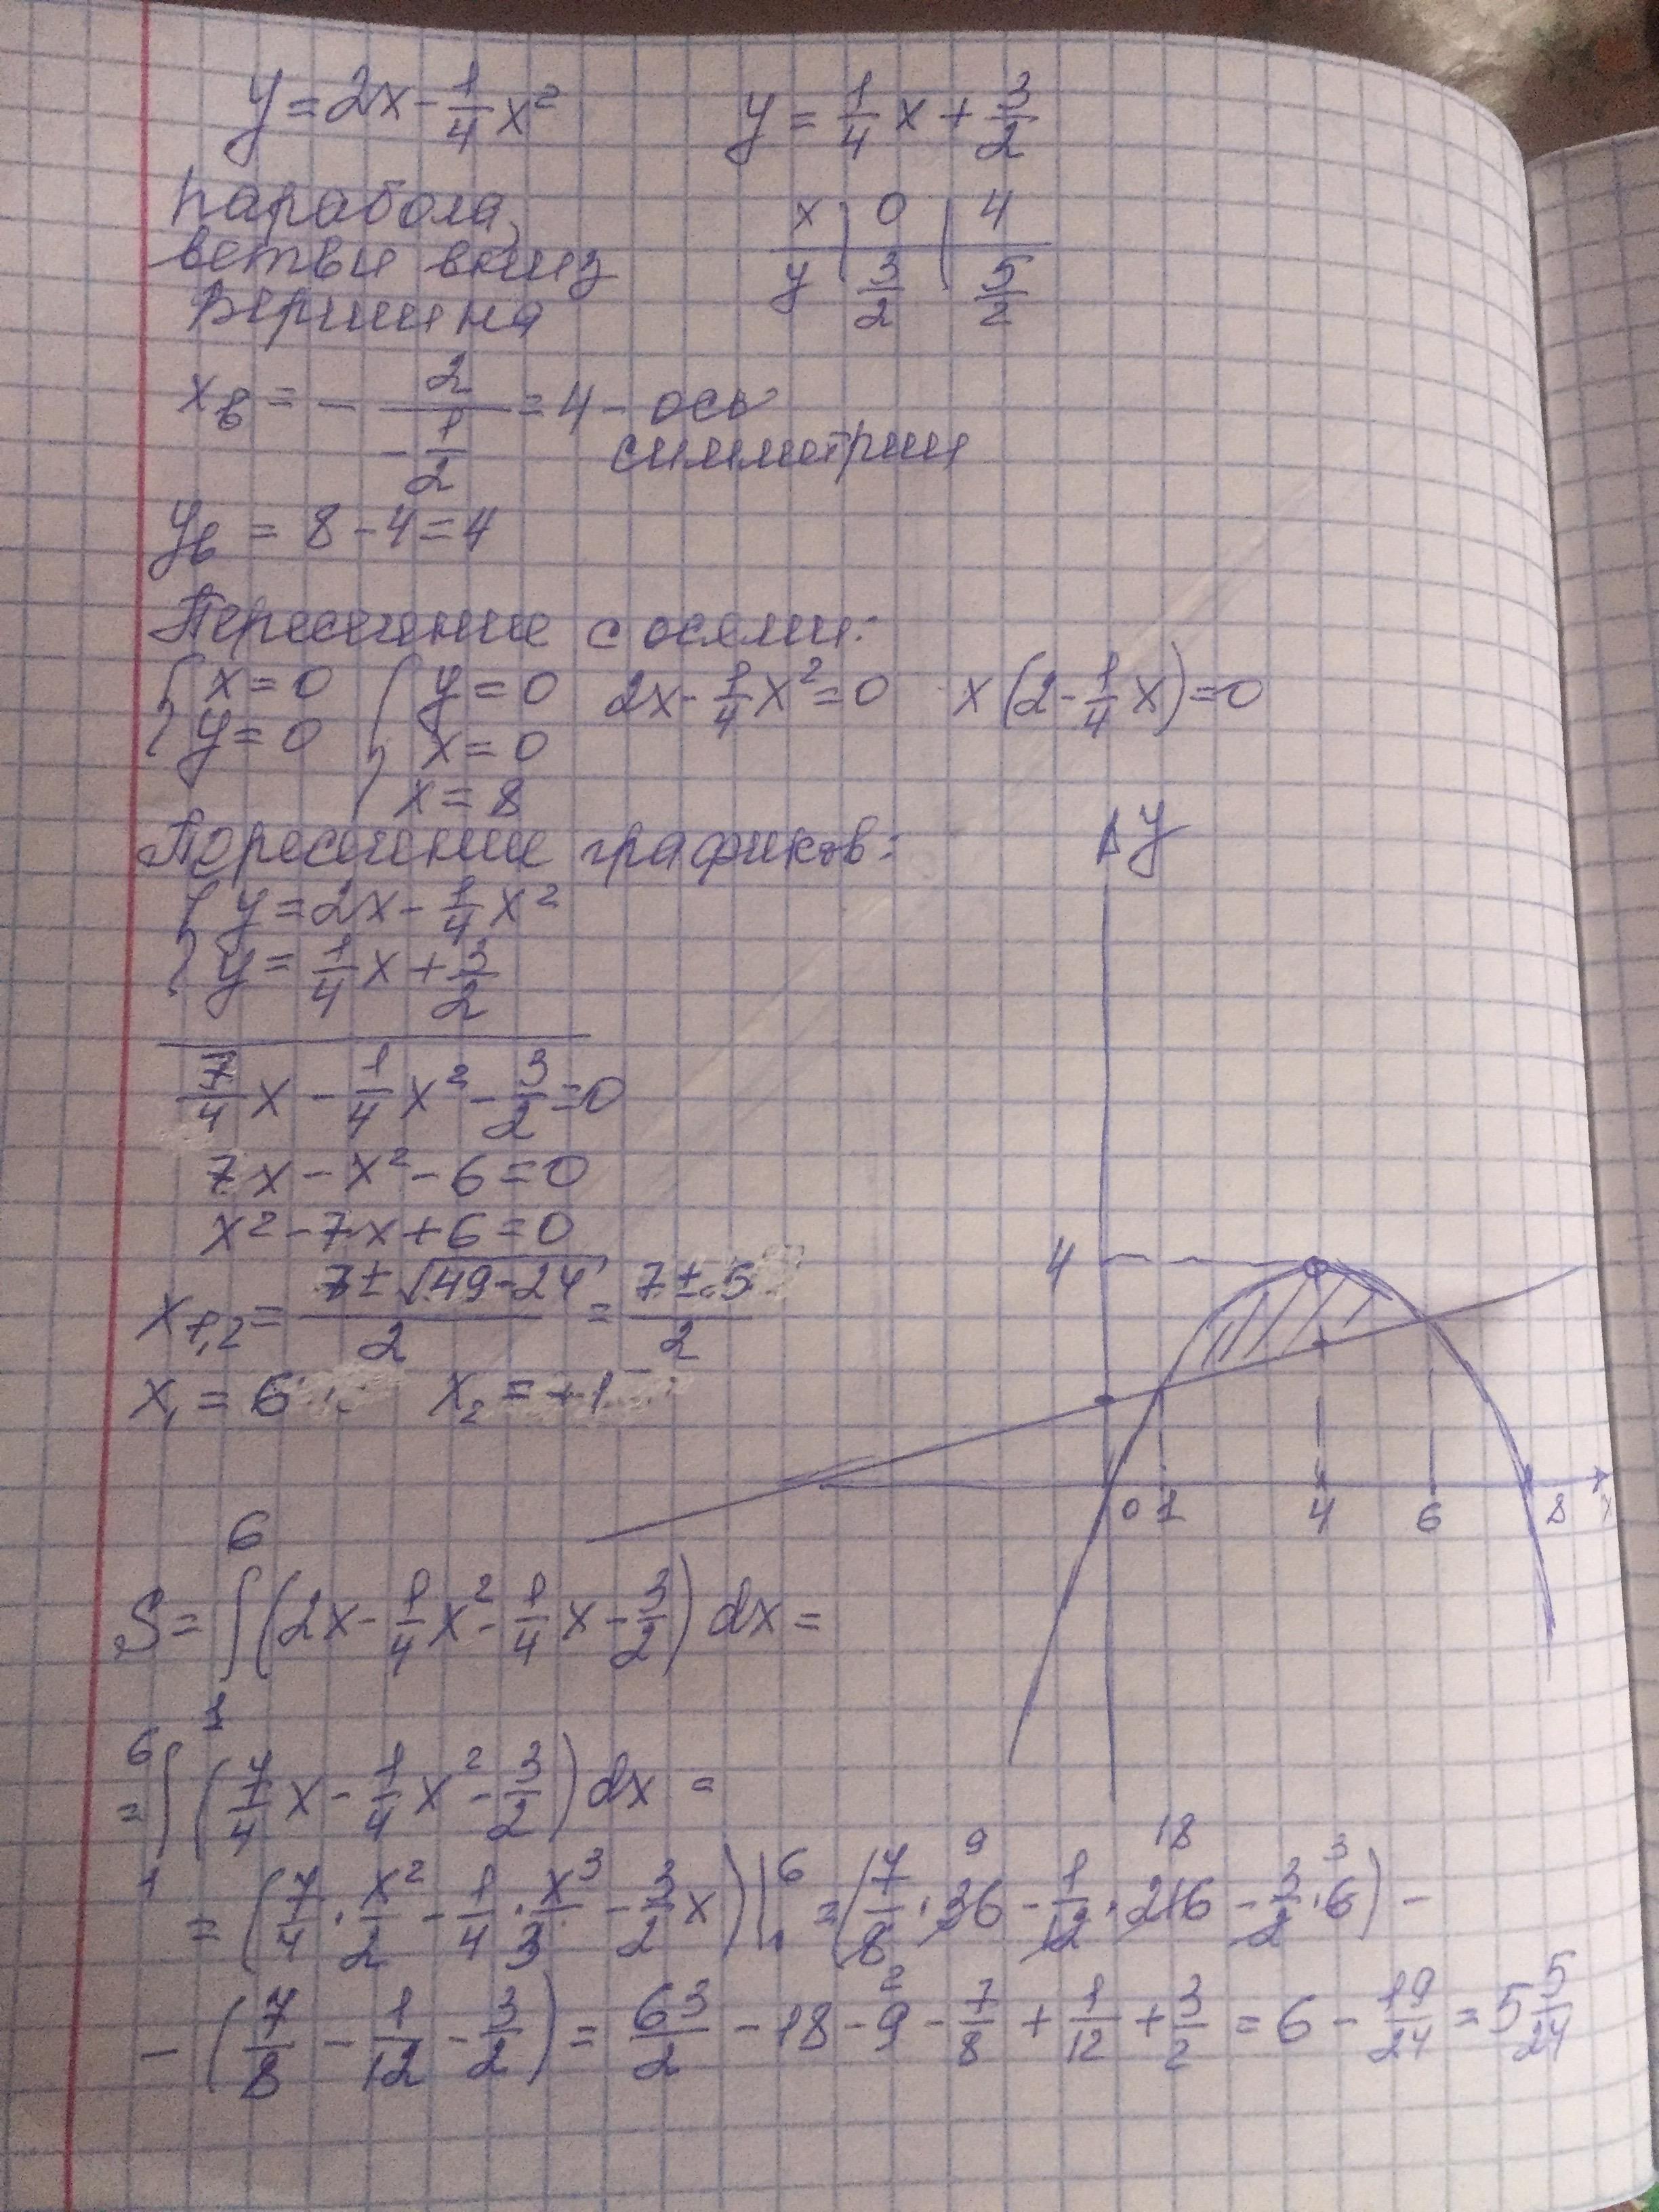 y = 2x - 1/4 x²    y = 1/4 x + 3/2
парабола,    x | 0 | 4
ветви вниз    y | 3/2 | 5/2
Вершина
xв = - 2/(-1/2) = 4 - ось симметрии
yв = 8 - 4 = 4
Пересечение с осями:
{ x = 0    { y = 0    2x - 1/4 x² = 0    x(2 - 1/4 x) = 0
{ y = 0    { x = 0
x = 8
Пересечение графиков:
{ y = 2x - 1/4 x²
{ y = 1/4 x + 3/2
7/4 x - 1/4 x² - 3/2 = 0
7x - x² - 6 = 0
x² - 7x + 6 = 0
x1,2 = (7 ± √(49 - 24))/2 = (7 ± 5)/2
x₁ = 6    x₂ = +1
y
4
0 1 4 6 8 x
S = ∫₁⁶ (2x - 1/4 x² - 1/4 x - 3/2) dx =
= ∫₁⁶ (7/4 x - 1/4 x² - 3/2) dx =
= (7/4 · x²/2 - 1/4 · x³/3 - 3/2 x) |₁⁶ = (7/8 · 36 - 1/12 · 216 - 3/2 · 6) -
- (7/8 - 1/12 - 3/2) = 63/2 - 18 - 9 - 7/8 + 1/12 + 3/2 = 6 - 19/24 = 5 5/24